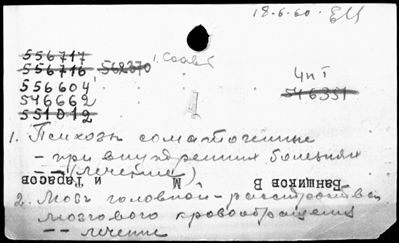 18.6.60.
556717
556716 562370
556604
546662
551012
546351
1. Психозы соматогенные
-- при внутренних болезнях
-- (лечение)
Банщиков В М и Тарасов
2. Мозг головной - расстройства
мозгового кровообращения
-- лечение